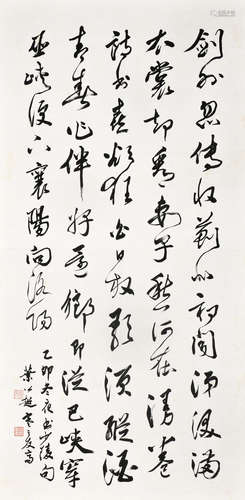 劍外忽傳收薊北初聞涕淚滿
衣裳却看妻子愁何在漫卷
詩書喜欲狂白日放歌須縱酒
青春作伴好還鄉即從巴峽穿
巫峽便下襄陽向洛陽
乙卯冬夜書少陵句
葉公超